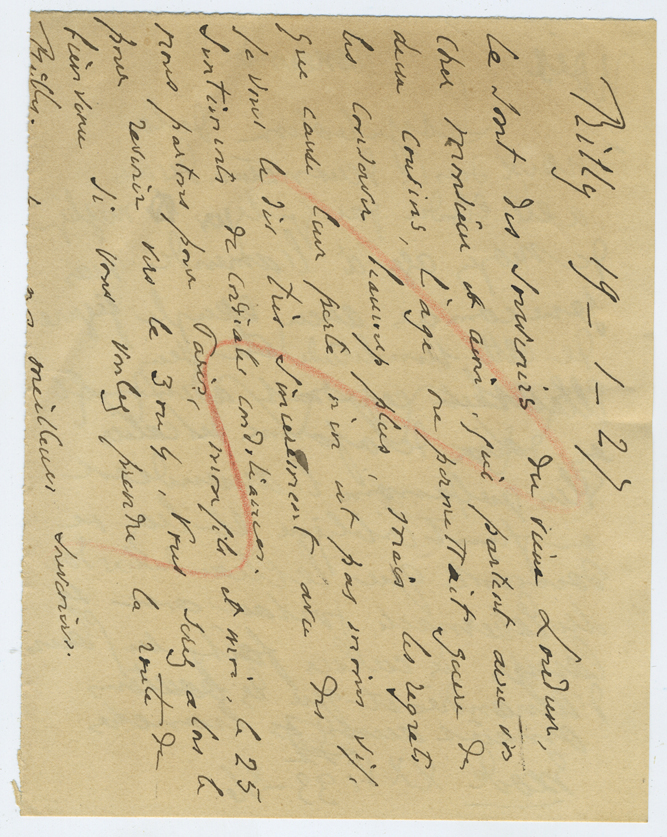 Rilly 19 - 1 - 27
Ce sont des souvenirs du vieux Loudun,
cher Monsieur et ami, qui partent avec vos
deux cousins, l'age ne permettait guere de
les conserver beaucoup plus, mais les regrets
que cause leur perte n'en est pas moins vif.
Je vous le dis très sincèrement avec des
sentiments de cordiales condoléances.
nous partons pour Paris, mon fils et moi, le 25
pour revenir vers le 3 ou 4, vous serez alors le
bienvenu si vous voulez prendre la route de
Rilly. meilleurs souvenirs.